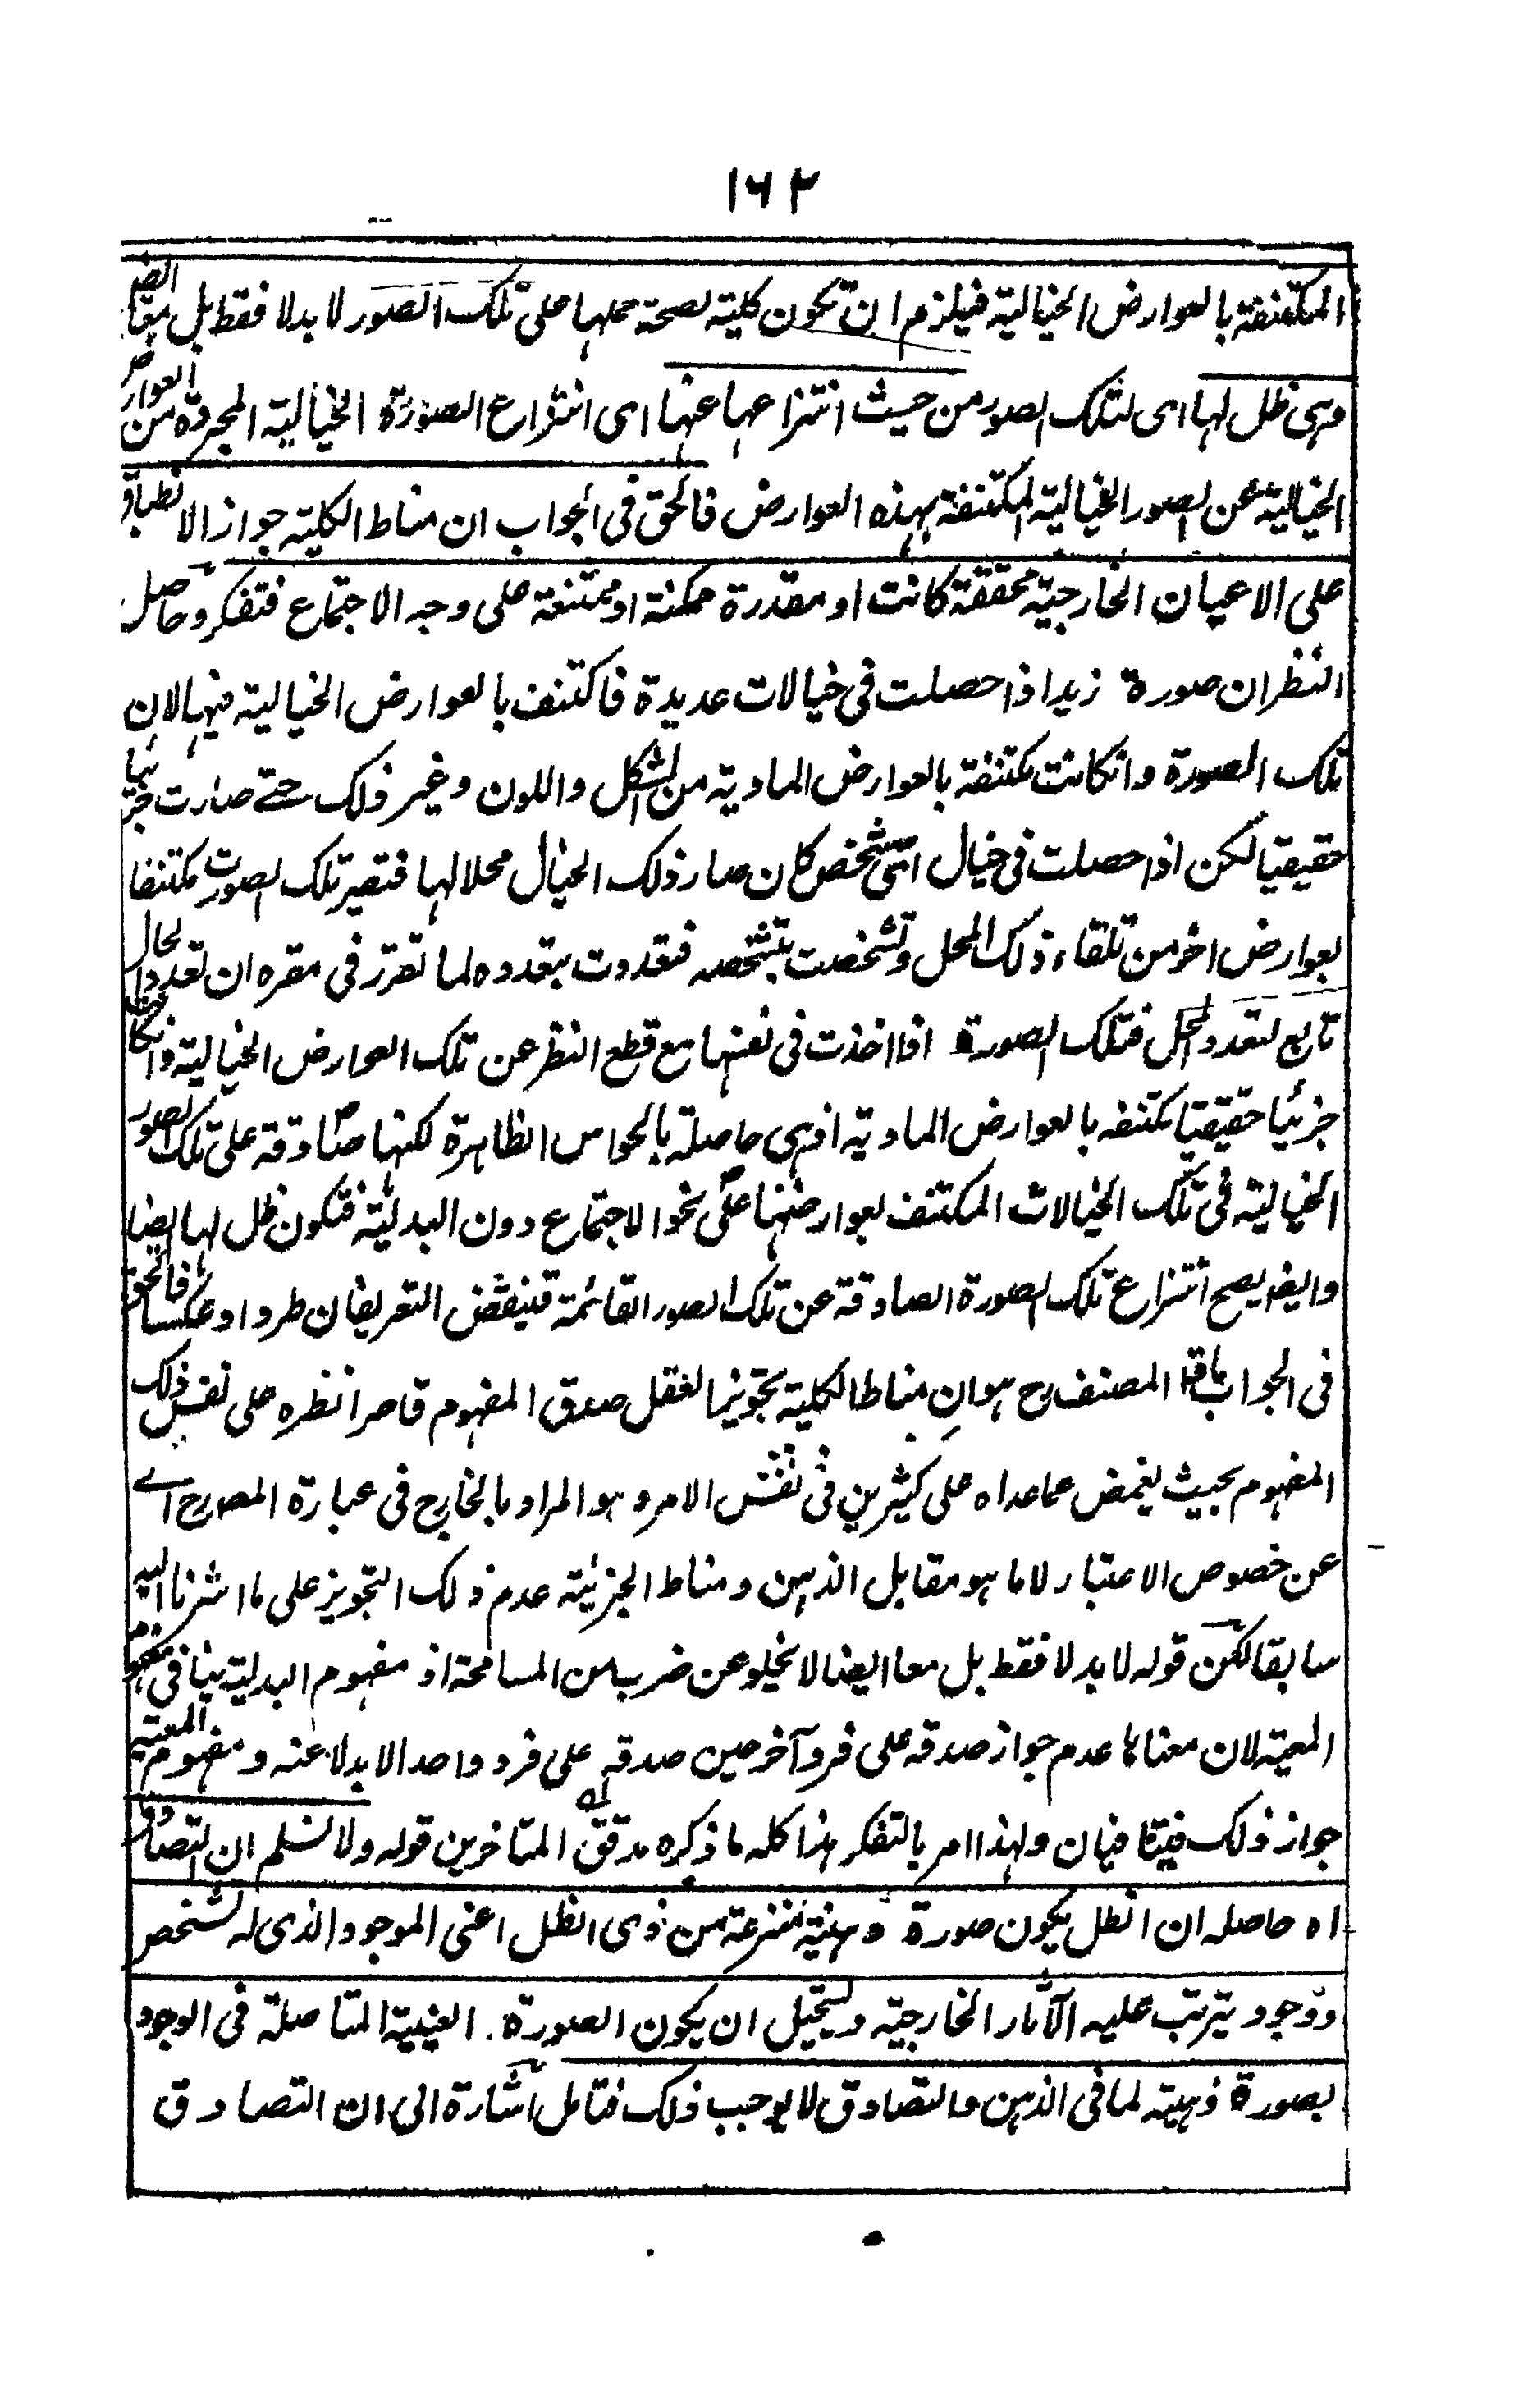 ١٦٢
المكتنفة بالعوارض الخيالية فيلزم ان تكون كلية لصحة حملها على تلك الصور لا بدلا فقط بل معا ايضا
وهى ظل لها اى لتلك الصور من حيث انتزاعها عنها اى انتزاع الصورة الخيالية المجردة من العوارض
الخيالية عن الصور الخيالية المكتنفة بهذه العوارض فالحق فى الجواب ان مناط الكلية جواز الانطباق
على الاعيان الخارجية محققة كانت او مقدرة ممكنة او ممتنعة على وجه الاجتماع فتفكر وحاصل
النظر ان صورة زيد اذا حصلت فى خيالات عديدة فاكتنف بالعوارض الخيالية فيها لان
تلك الصورة وانكانت مكتنفة بالعوارض المادية من الشكل واللون وغير ذلك حتے صارت جزئيا
حقيقيا لكن اذا حصلت فى خيال اى شخص كان صار ذلك الخيال محلا لها فتصير تلك الصورت مكتنفا
بعوارض اخر من تلقاء ذلك المحل وتشخصت بتشخصه فتعددت بتعدده لما تقرر فى مقره ان تعدد الحال
تابع لتعدد المحل فتلك الصورة اذا اخذت فى نفسها مع قطع النظر عن تلك العوارض الخيالية وانكانت
جزئيا حقيقيا مكتنفه بالعوارض المادية اذ هى حاصلة بالحواس الظاهرة لكنها صادقة على تلك الصور
الخيالية فى تلك الخيالات المكتنف بعوارضها على نحو الاجتماع دون البدلية فتكون ظل لها ايضا
وايضا يصح انتزاع تلك الصورة الصادقة عن تلك الصور القائمة فينقض التعريفان طردا وعكسا فالحق
فى الجواب ما قال المصنف رح هو ان مناط الكلية تجويز العقل صدق المفهوم قاصرا نظره على نفس ذلك
المفهوم بحيث يغمض عما عداه على كثيرين فى نفس الامر وهو المراد بالخارج فى عبارة المص رح اے
عن خصوص الاعتبار لا ما هو مقابل الذهن ومناط الجزئية عدم ذلك التجويز على ما اشرنا اليه
سابقا لكن قوله لا بدلا فقط بل معا ايضا لا يخلو عن ضرب من المسامحة اذ مفهوم البدلية ينافى مفهوم
المعية لان معناها عدم جواز صدقه على فرد آخر حين صدقه على فرد واحد الا بدلا عنه ومفهوم المعية
جواز ذلك فيتنافيان ولهذا امر بالتفكر هذا كله ما ذكره مدقق المتاخرين قوله ولا نسلم ان التصادق
اه حاصله ان الظل يكون صورة ذهنية منتزعة من ذى الظل اعنى الموجود الذى له تشخص
ووجود يترتب عليه الآثار الخارجية ويستحيل ان يكون الصورة العينية المتاصلة فى الوجود
بصورة ذهنية لما فى الذهن والتصادق لا يوجب ذلك فتامل اشارة الى ان التصادق